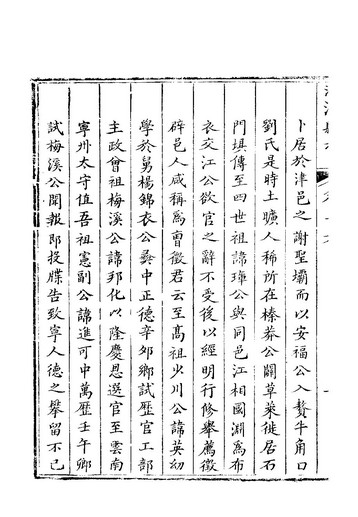 卜居於津邑之謝聖壩而以安福公入贅牛角口
劉氏是時土曠人稀所在榛莽公闢草萊徙居石
門塡傳至四世祖諱璍公與同邑江相國淵爲布
衣交江公欲官之辭不受後以經明行修舉薦徵
辟邑人咸稱爲曺徵君云至高祖少川公諱英幼
學於舅楊錦衣公彜中正德辛夘鄉試歴官工部
主政曾祖梅溪公諱邦化以隆慶恩選官至雲南
寧州太守値吾祖憲副公諱進可中萬歴壬午鄉
試梅溪公聞報即投牒告致寧人德之攀留不已